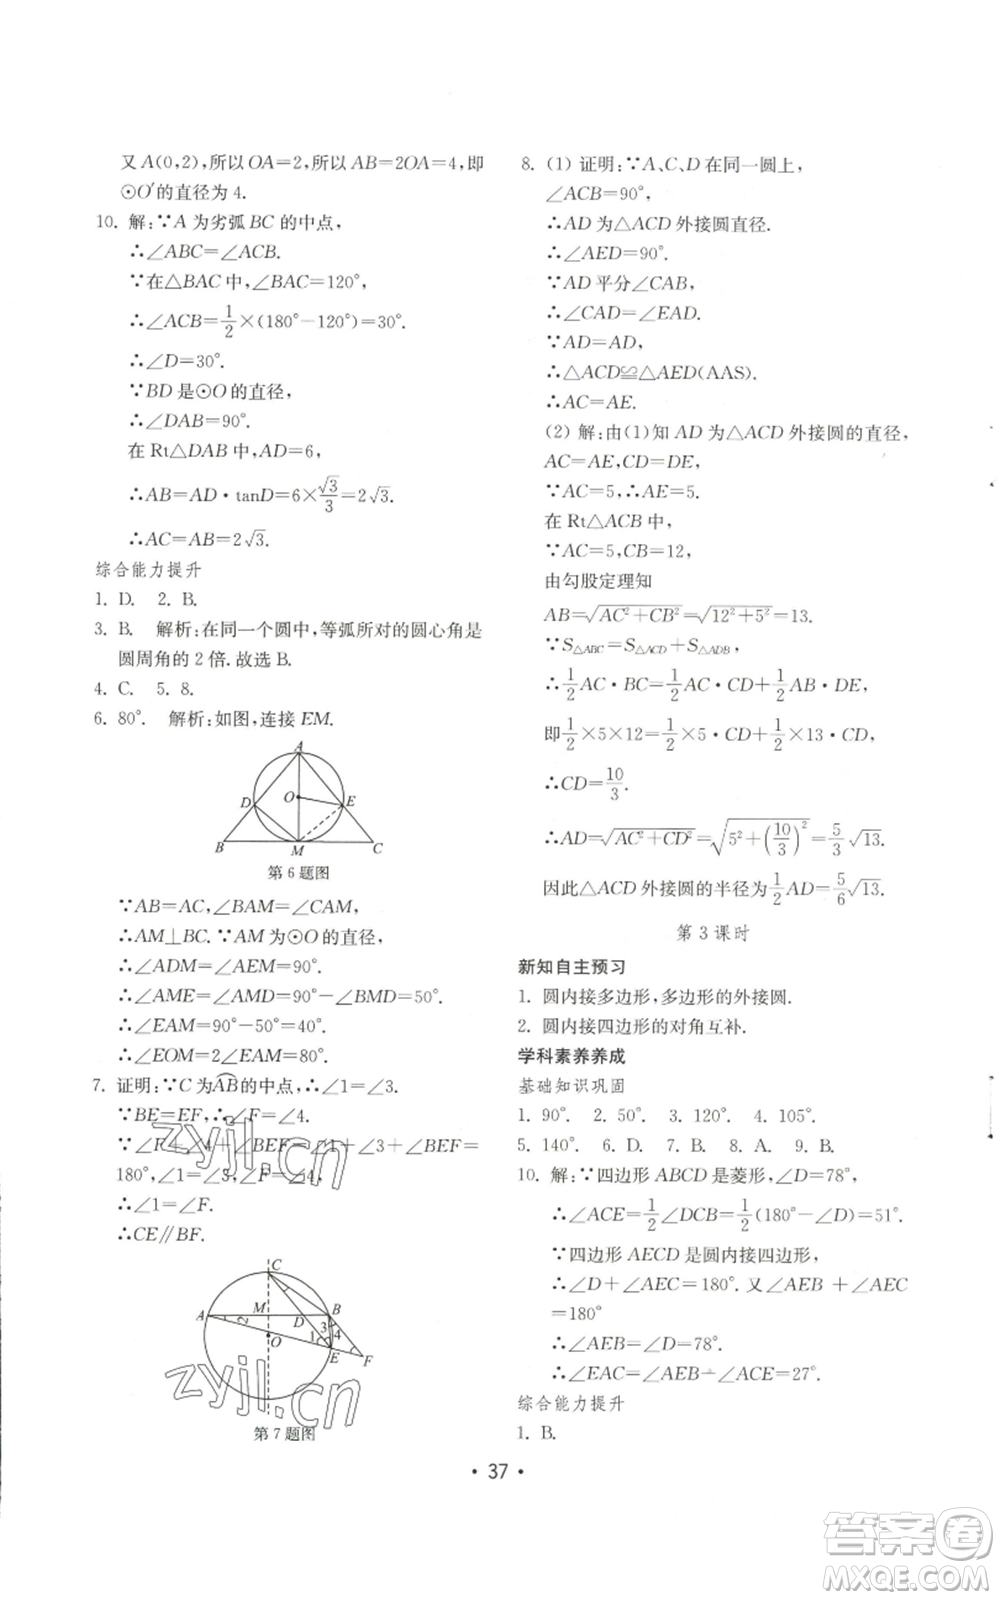 又 A(0,2),所以 OA=2,所以 AB=2OA=4,即
⊙O′的直径为 4.
10. 解:∵A 为劣弧 BC 的中点,
∴∠ABC=∠ACB.
∵在△BAC 中,∠BAC=120°,
∴∠ACB=1/2×(180°-120°)=30°.
∴∠D=30°.
∵BD 是⊙O 的直径,
∴∠DAB=90°.
在 Rt△DAB 中,AD=6,
∴AB=AD·tanD=6×√3/3=2√3.
∴AC=AB=2√3.
综合能力提升
1. D. 2. B.
3. B. 解析:在同一个圆中,等弧所对的圆心角是
圆周角的 2 倍.故选 B.
4. C. 5. 8.
6. 80°. 解析:如图,连接 EM.
A
O
D E
B M C
第 6 题图
∵AB=AC,∠BAM=∠CAM,
∴AM⊥BC.∵AM 为⊙O 的直径,
∴∠ADM=∠AEM=90°.
∴∠AME=∠AMD=90°-∠BMD=50°.
∴∠EAM=90°-50°=40°.
∴∠EOM=2∠EAM=80°.
7. 证明:∵C 为AB的中点,∴∠1=∠3.
∵BE=EF,∴∠F=∠4.
∵∠F+∠4+∠BEF=∠1+∠3+∠BEF=
180°,∠1=∠3,∠F=∠4.
∴∠1=∠F.
∴CE∥BF.
C
A M B
2 D 3
O 1 4
E F
第 7 题图
8. (1) 证明:∵A、C、D 在同一圆上,
∠ACB=90°,
∴AD 为△ACD 外接圆直径.
∴∠AED=90°.
∵AD 平分∠CAB,
∴∠CAD=∠EAD.
∵AD=AD,
∴△ACD≌△AED(AAS).
∴AC=AE.
(2) 解:由(1)知 AD 为△ACD 外接圆的直径,
AC=AE,CD=DE,
∵AC=5,∴AE=5.
在 Rt△ACB 中,
∵AC=5,CB=12,
由勾股定理知
AB=√(AC²+CB²)=√(12²+5²)=13.
∵S△ABC=S△ACD+S△ADB,
∴1/2AC·BC=1/2AC·CD+1/2AB·DE,
即1/2×5×12=1/2×5·CD+1/2×13·CD,
∴CD=10/3.
∴AD=√(AC²+CD²)=√(5²+(10/3)²)=5/3√13.
因此△ACD 外接圆的半径为1/2AD=5/6√13.
第 3 课时
新知自主预习
1. 圆内接多边形,多边形的外接圆.
2. 圆内接四边形的对角互补.
学科素养养成
基础知识巩固
1. 90°. 2. 50°. 3. 120°. 4. 105°.
5. 140°. 6. D. 7. B. 8. A. 9. B.
10. 解:∵四边形 ABCD 是菱形,∠D=78°,
∴∠ACE=1/2∠DCB=1/2(180°-∠D)=51°.
∵四边形 AECD 是圆内接四边形,
∴∠D+∠AEC=180°.又∠AEB +∠AEC
=180°
∴∠AEB=∠D=78°.
∴∠EAC=∠AEB-∠ACE=27°.
综合能力提升
1. B.
• 37 •
zyjl.cn
zyjl.cn
答案圈
MXQE.COM